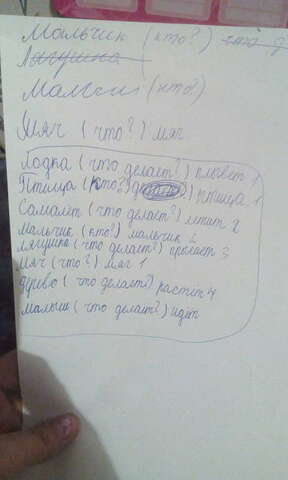 Мальчик (кто?) что з
Лягушка
Малыш (кто?)
Мяч (что?) мяч
Лодка (что делает?) плывет 4
Птица (кто?) птица 1
Самалёт (что делает?) летит 2
Мальчик (кто?) мальчик 2
лягушка (что делает?) прыгает 3
Мяч (что?) мяч 1
дерево (что делает?) растет 4
малыш (что делает?) идёт